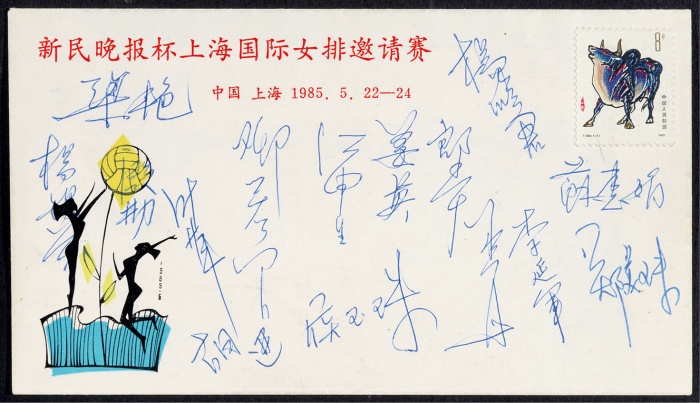 新民晚报杯上海国际女排邀请赛
中国 上海 1985. 5. 22—24
8分
中国人民邮政
1985
梁艳
杨晓君
郎平
姜英
江申生
邓若曾
殷勤
苏惠娟
李延军
巫丹
郑美珠
侯玉珠
胡进